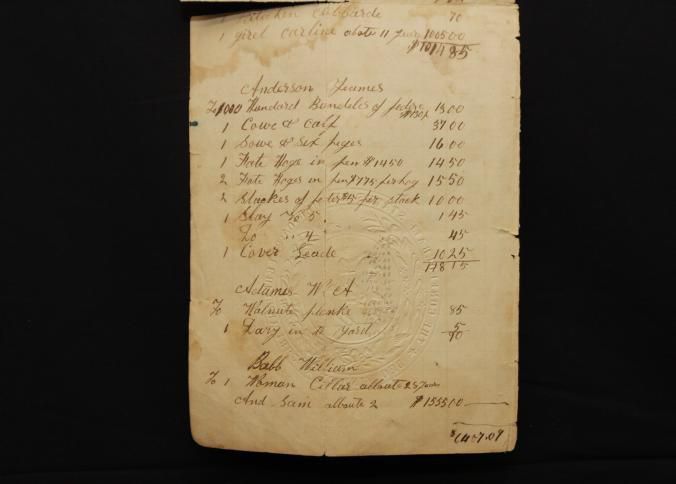 Kitchen Cubbarde 70
1 girel carline aboute 11 years 1005 00
1485
Anderson James
To 1000 Hundard Bundeles of fodere 13 00
1 Cowe & Calf 37 00
1 Sowe & Six piges 16 00
1 Fate Hoge in pen $14 50 14 50
2 Fate Hoges in pen $7 75 per hog 15 50
2 Stackes of $5 per stack 10 00
1 Slay No 5 1 45
Do " 4 45
1 Cover Leade 10 25
118 15
Adames W A
To Walnute planke 85
1 in the yard 5
90
Babb William
To 1 Woman Cillar alboute 25 years
And Sam alboute 2 $1555 00